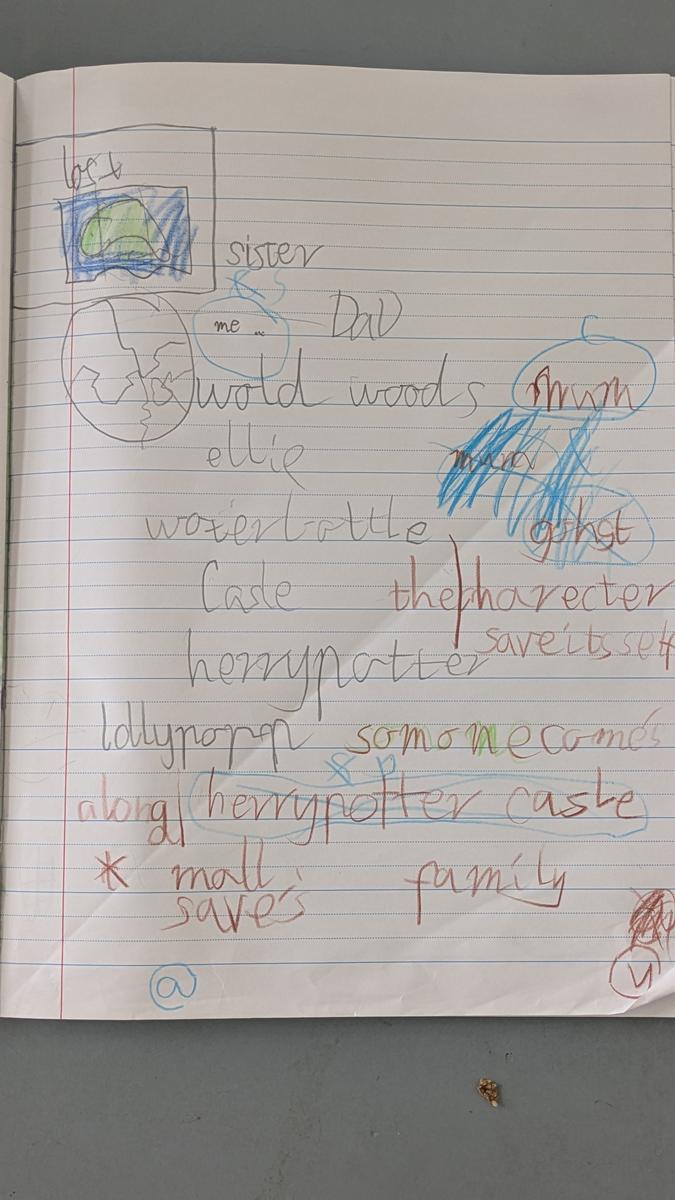 lost
sister
S
me .. Dad
C
wold woods mum
ellie mum
waterbottle gohst
Casle the charecter
save its self
herrypotter
lollypopp somonecomes
p
along herrypotter casle
* mall family
saves
@
y